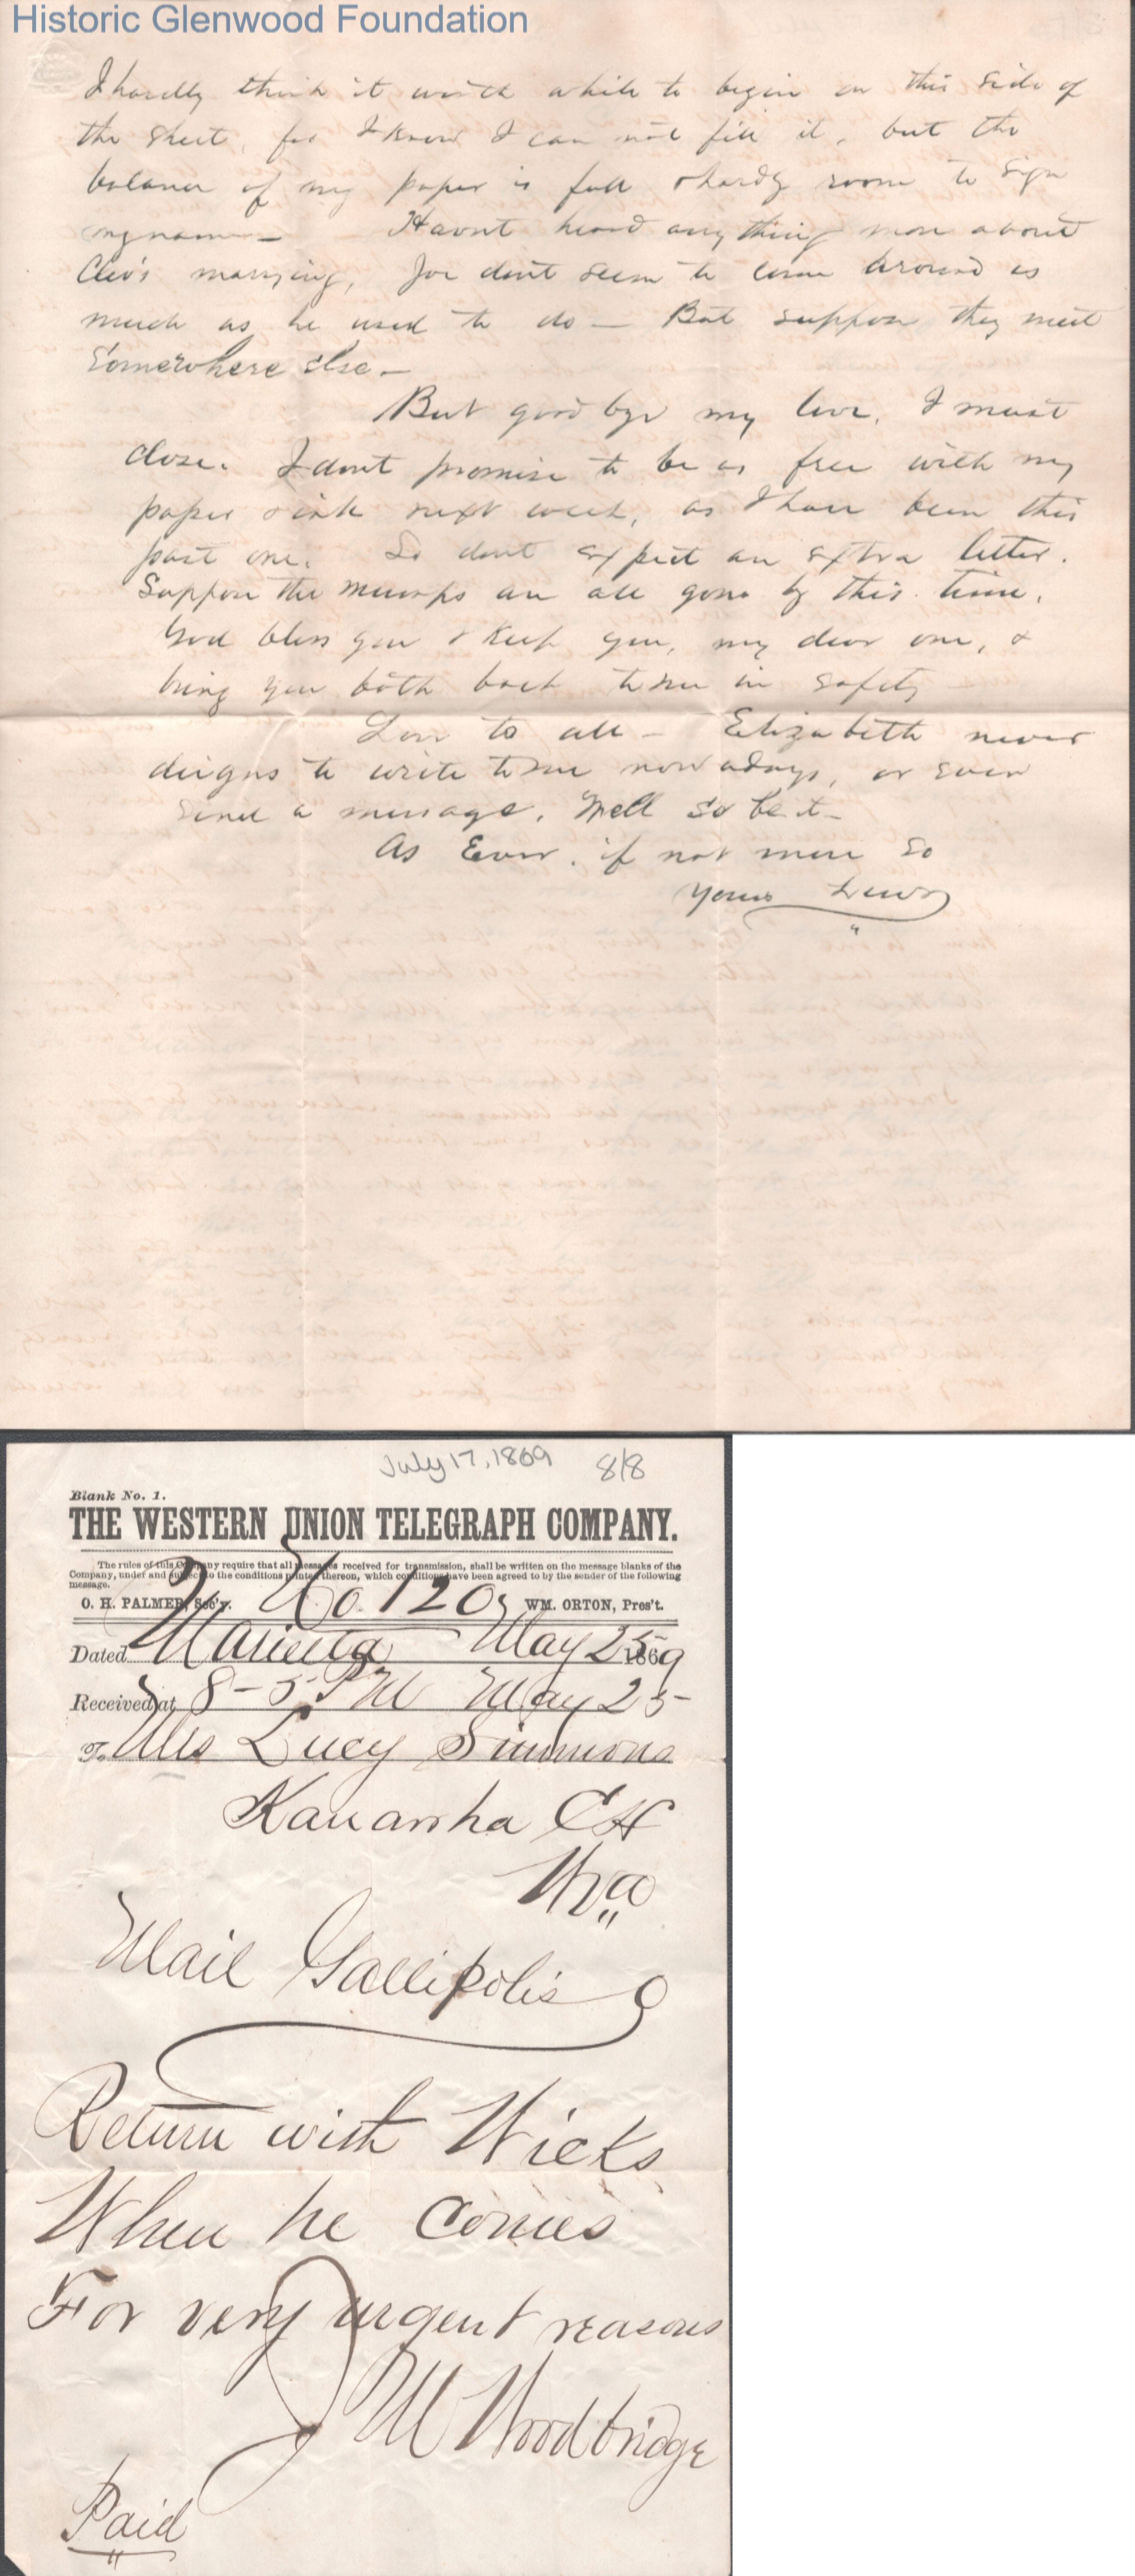 Historic Glenwood Foundation
I hardly think it worth while to begin on this side of
the sheet, for I know I can not fill it, but the
balance of my paper is full & hardly room to sign
my name — Havnt heard any thing more about
Cleo's marrying, Joe dont seem to come around as
much as he used to do — But suppose they meet
Somewhere else —
But good bye my love, I must
close. I dont promise to be as free with my
paper & ink next week, as I have been this
past one. So dont expect an extra letter.
Suppose the mumps are all gone by this time.
God bless you & keep you, my dear one, &
bring you both back to me in safety —
Love to all — Elizabeth never
deigns to write to me now adays, or even
send a message. Well so be it —
As Ever, if not more so
Yours Lewis
July 17, 1869 8/8
Blank No. 1.
THE WESTERN UNION TELEGRAPH COMPANY.
The rules of this Company require that all messages received for transmission, shall be written on the message blanks of the
Company, under and subject to the conditions printed thereon, which conditions have been agreed to by the sender of the following
message.
O. H. PALMER, Sec'y. No. 120 WM. ORTON, Pres't.
Dated Marietta May 25 1869
Received at 8-5 PM May 25-
To Mrs Lucy Simmons
Kanawha C H
Wva
Mail Gallipolis O
Return with Wicks
When he comes
For very urgent reasons
J M Woodbridge
Paid